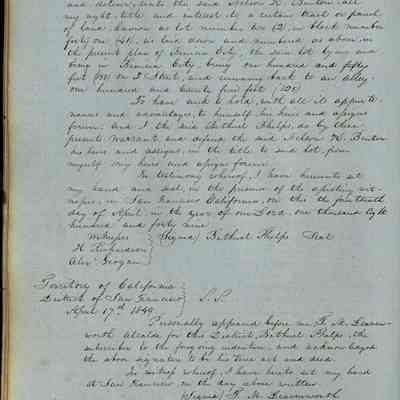 and deliver, unto the said Nelson H. Benton, all
my right, title and interest to a certain tract or parcel
of land, known as lot number two (2), in block number
forty one (41), as laid down and numbered as above, in
the present plan of Benicia City, the said lot lying and
being in Benicia City, being one hundred and fifty
feet (150) on I Street, and running back to an alley
one hundred and twenty five feet (125)
To have and to hold, with all it appurte-
nances and advantages, to himself, his heirs and assigns
forever, and I the said Bethuel Phelps, do by these
presents warrant and defend the said Nelson H. Benton
his heirs and assigns, in the title to said lot, from
myself my heirs and assigns forever.
In testimony whereof, I have hereunto set
my hand and seal, in the presence of the assisting wit-
nesses, in San Francisco California, on this the fourteenth
day of April, in the year of our Lord, one thousand eight
hundred and forty nine
Witnesses } (Signed) Bethuel Phelps Seal
H. Richardson
Alex. Grogan
Territory of California
District of San Francisco } S.S.
April 17th 1849
Personally appeared before me T. M. Leaven-
worth Alcalde for this District, Bethuel Phelps, the
subscriber to the foregoing indenture, and acknowledged
the above signature to be his true act and deed.
In witness whereof, I have hereto set my hand
at San Francisco, on the day above written
(Signed) T. M. Leavenworth